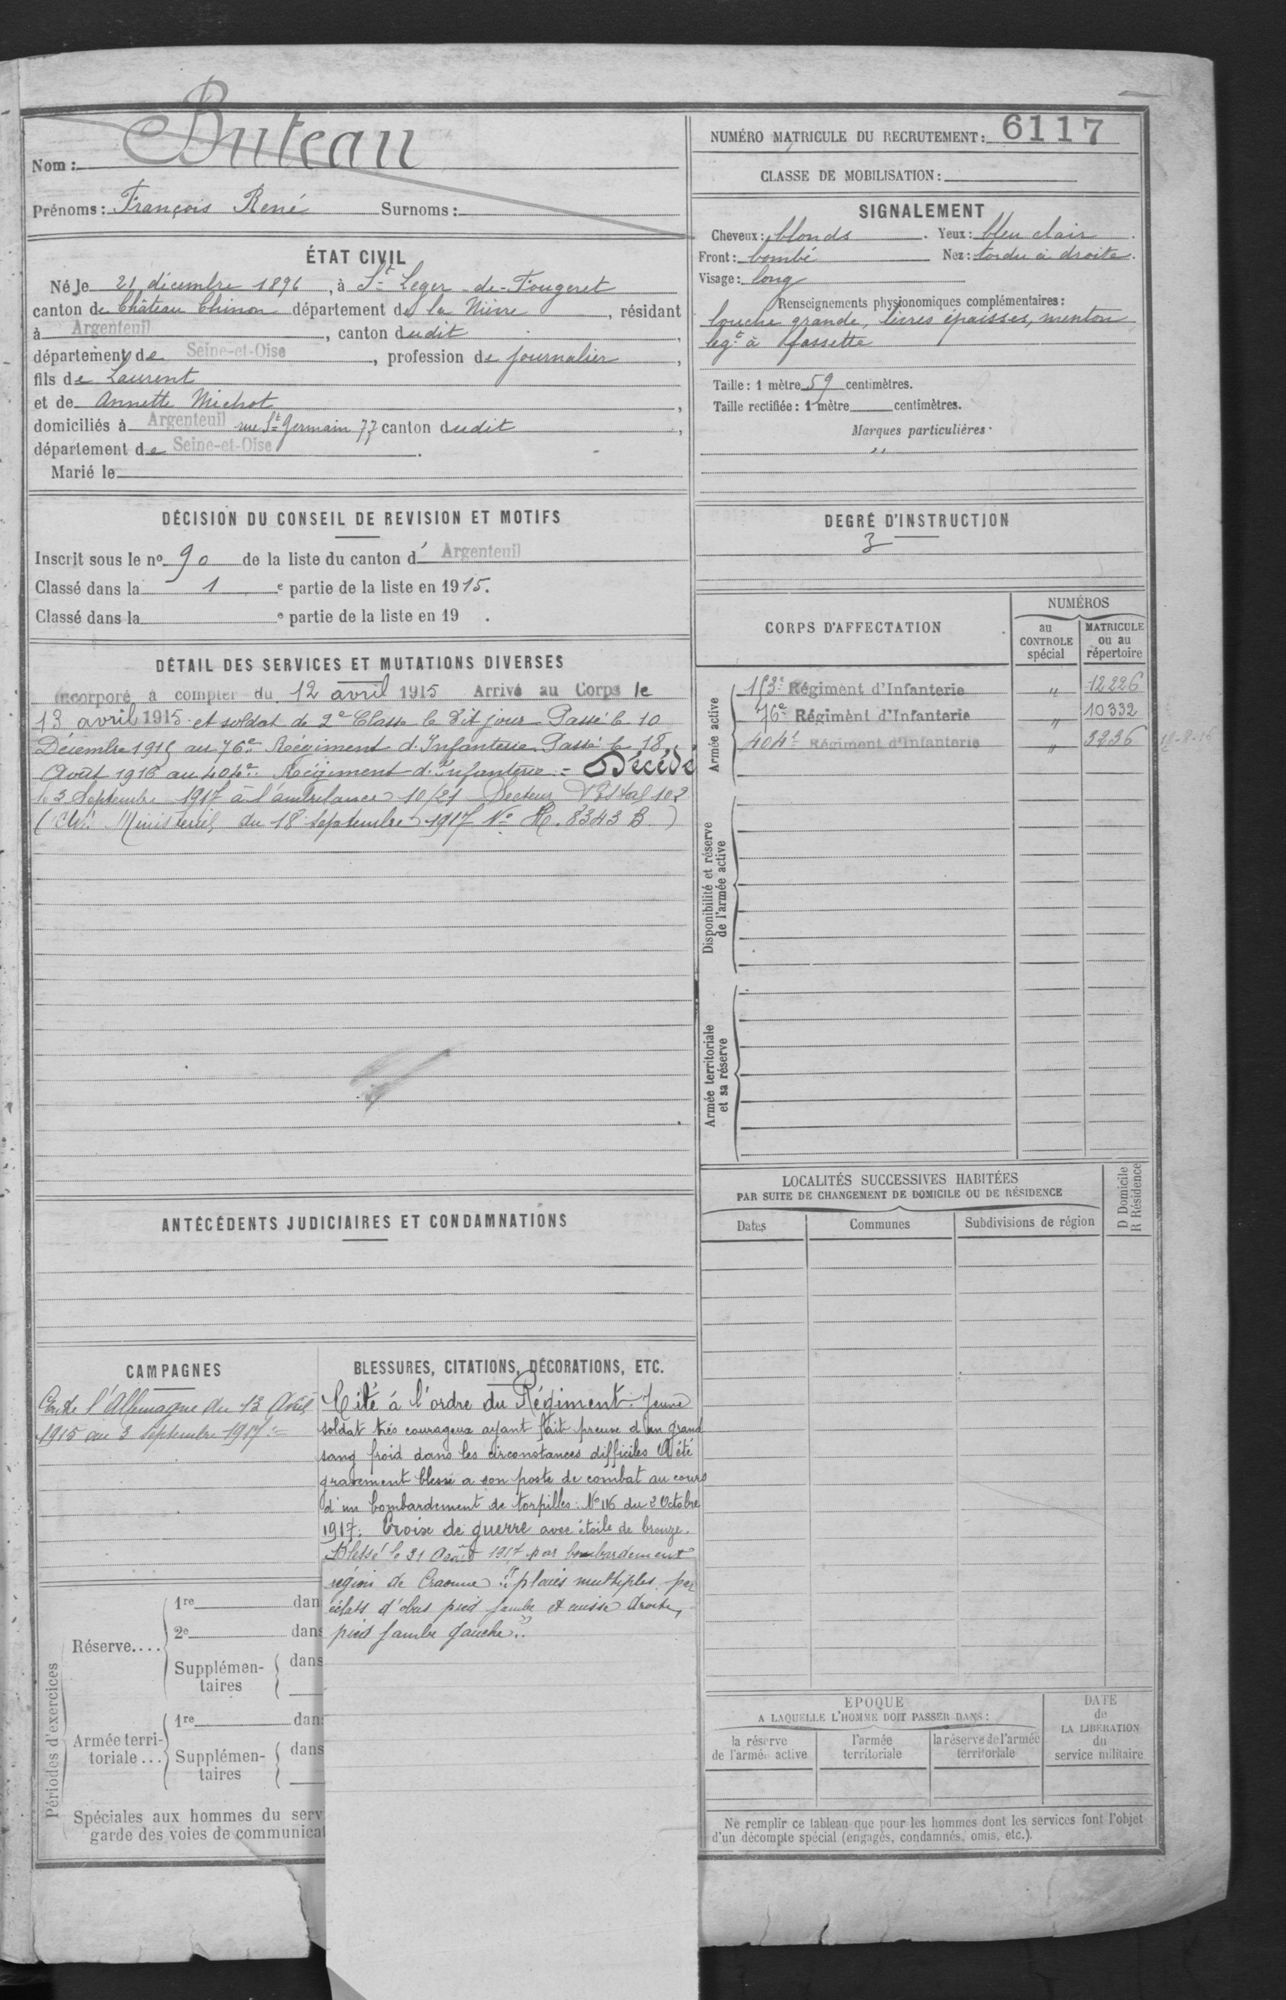 Nom : Buteau
Prénoms : François René Surnoms :
ÉTAT CIVIL
Né le 21 décembre 1896, à St Leger-de-Fougeret
canton de Château Chinon département de la Nièvre, résidant
à Argenteuil, canton dudit,
département de Seine-et-Oise, profession de journalier,
fils de Laurent
et de Annette Michot,
domiciliés à Argenteuil rue St Germain 77 canton dudit,
département de Seine-et-Oise.
Marié le
DÉCISION DU CONSEIL DE REVISION ET MOTIFS
Inscrit sous le no 90 de la liste du canton d' Argenteuil
Classé dans la 1 e partie de la liste en 1915.
Classé dans la e partie de la liste en 19 .
DÉTAIL DES SERVICES ET MUTATIONS DIVERSES
Incorporé à compter du 12 avril 1915 Arrivé au Corps le
13 avril 1915 et soldat de 2e Classe le dit jour Passé le 10
Décembre 1915 au 76e Régiment d'Infanterie Passé le 18
Août 1916 au 404e Régiment d'Infanterie = Décédé
le 3 Septembre 1917 à l'ambulance 10/21 Secteur Postal 102
( Ministeriel du 18 Septembre 1917 No 8343 B )
ANTÉCÉDENTS JUDICIAIRES ET CONDAMNATIONS
CAMPAGNES
Contre l'Allemagne du 12 Avril
1915 au 3 Septembre 1917
BLESSURES, CITATIONS, DÉCORATIONS, ETC.
Cité à l'ordre du Régiment. Jeune
soldat trés courageux ayant fait preuve d'un grand
sang froid dans les circonstances difficiles A été
gravement blessé a son poste de combat au cours
d'un bombardement de torpilles. No 116 du 2 Octobre
1917. Croix de guerre avec étoile de bronze.
Blessé le 31 Août 1917 par bombardement
région de Craonne : "plaies multiples par
éclats d'obus pied jambe et cuisse droite,
pied jambe gauche".
Périodes d'exercices
Réserve....
1re dan
2e dans
Supplémen- dans
taires
Armée terri-
toriale...
1re dans
Supplémen- dans
taires
Spéciales aux hommes du serv
garde des voies de communicat
NUMÉRO MATRICULE DU RECRUTEMENT : 6117
CLASSE DE MOBILISATION :
SIGNALEMENT
Cheveux : blonds. Yeux : bleu clair.
Front : bombé Nez : tordu à droite.
Visage : long
Renseignements physionomiques complémentaires :
bouche grande, lèvres épaisses, menton
legt à fossette
Taille : 1 mètre 59 centimètres.
Taille rectifiée : 1 mètre centimètres.
Marques particulières.
"
DEGRÉ D'INSTRUCTION
3
CORPS D'AFFECTATION
NUMÉROS
au CONTROLE spécial
MATRICULE ou au répertoire
Armée active
153e Régiment d'Infanterie " 12226
76e Régiment d'Infanterie " 10332
404e Régiment d'Infanterie " 3236
Disponibilité et réserve
de l'armée active
Armée territoriale
et sa réserve
LOCALITÉS SUCCESSIVES HABITÉES
PAR SUITE DE CHANGEMENT DE DOMICILE OU DE RÉSIDENCE
D Domicile
R Résidence
Dates Communes Subdivisions de région
ÉPOQUE
A LAQUELLE L'HOMME DOIT PASSER DANS :
la réserve
de l'armée active
l'armée
territoriale
la réserve de l'armée
territoriale
DATE
de
LA LIBÉRATION
du
service militaire
Ne remplir ce tableau que pour les hommes dont les services font l'objet
d'un décompte spécial (engagés, condamnés, omis, etc.).